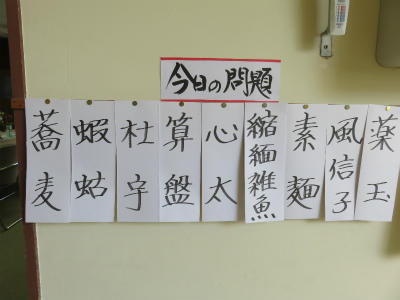 今日の問題
薬玉
風信子
素麺
縮緬雑魚
心太
算盤
杜宇
蝦蛄
蕎麦